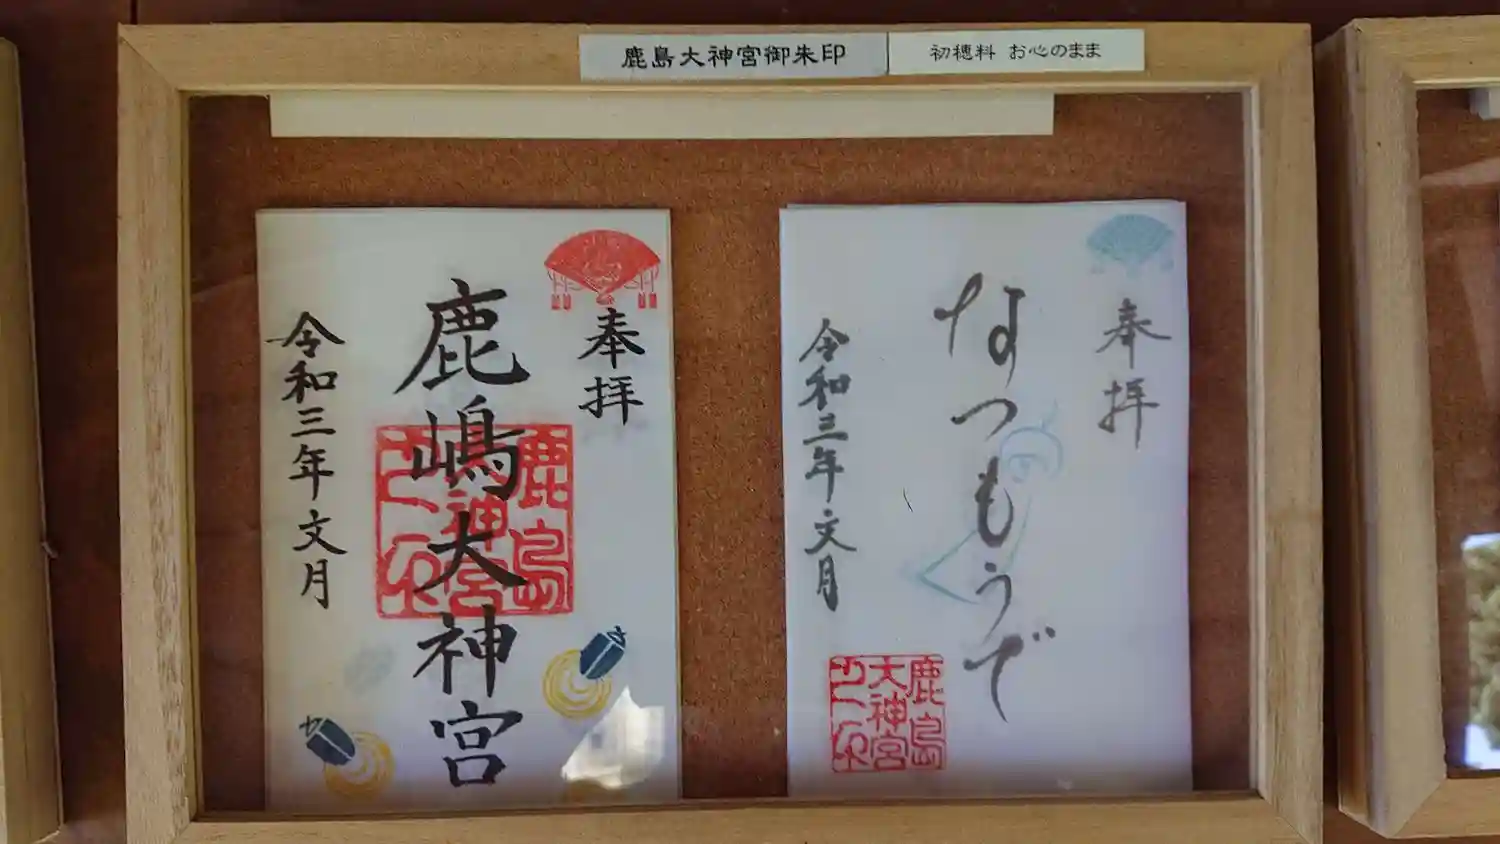 鹿島大神宮御朱印
初穂料 お心のまま
奉拝
鹿嶋大神宮
令和三年文月
鹿島
大神宮
之印
奉拝
なつもうで
令和三年文月
鹿島
大神宮
之印